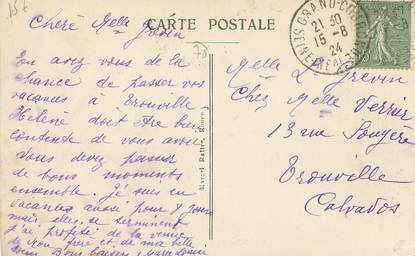 CARTE POSTALE
Chère Melle Grévin
En avez vous de la
chance de passer vos
vacances à Trouville
Hélène doit être bien
contente de vous avoir
Vous devez passer
de bons moments
ensemble. Je suis en
vacances aussi pour 8 jours
mais elles se terminent
J'ai profité de la venue
de mon frère et de ma belle
Bons baisers
Marcel
Rouen
GRAND-COU
21 30
15 - 8
24
Melle L Grévin
Chez Melle Verrier
13 rue
Trouville
Calvados